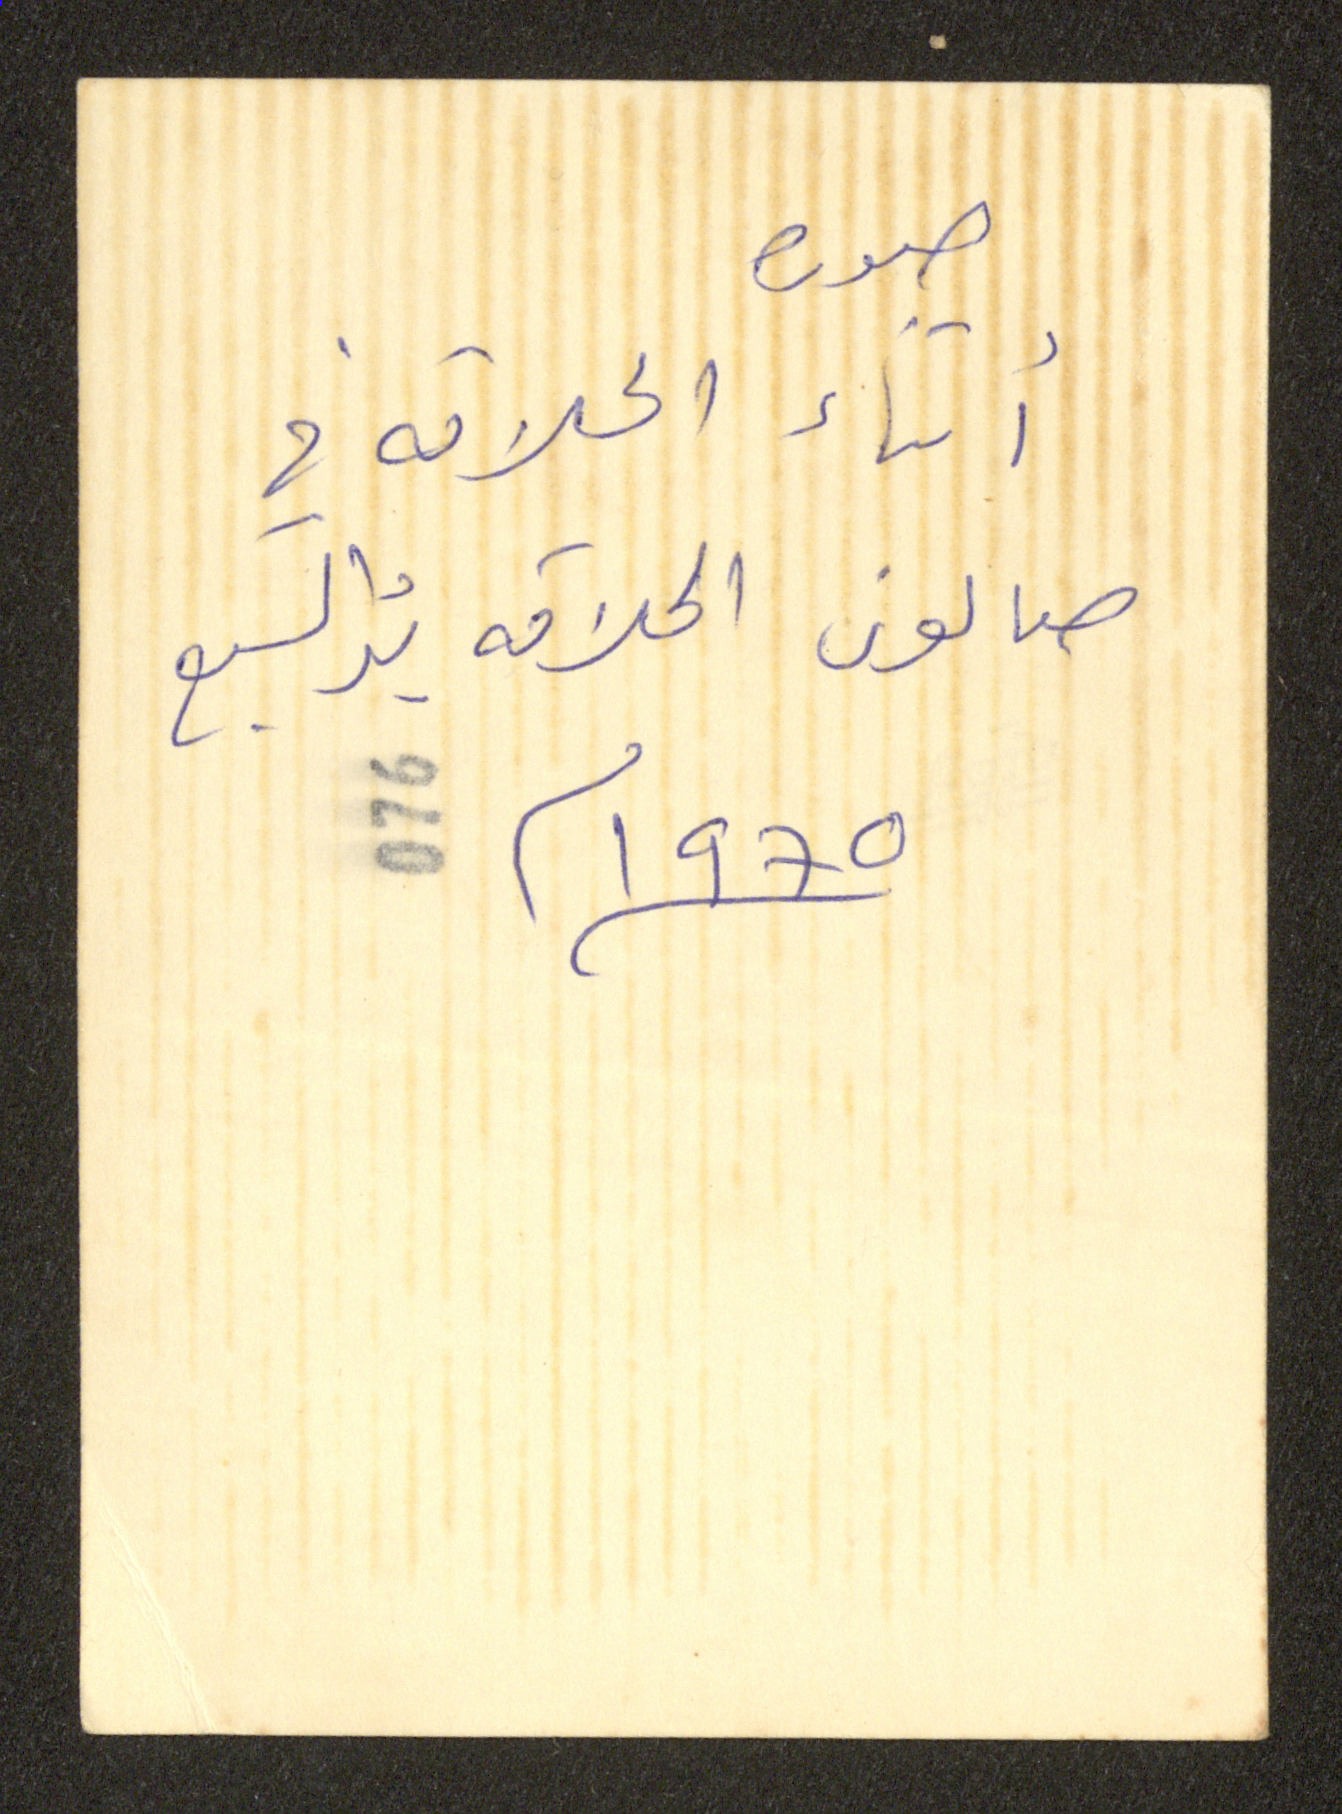 صوره
أثناء الحلاقه في
صالون الحلاقه بئر السبع
1970 م
076